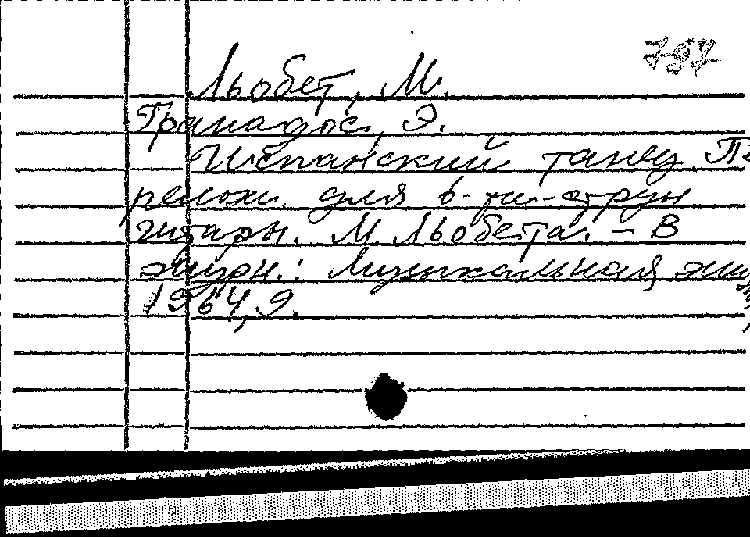 787
Льобет, М.
Гранадос, Э.
Испанский танец. Пе
релож. для 6-ти-струн
гитары. М. Льобета. – В
журн.: Музыкальная жиз
1964, 9.